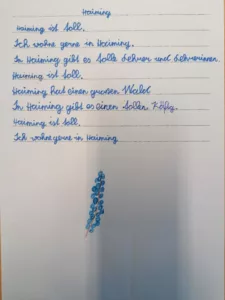 Haiming
Haiming ist toll.
Ich wohne gerne in Haiming.
In Haiming gibt es tolle Lehrer und Lehrerinnen.
Haiming ist toll.
Haiming hat einen großen Wald
In Haiming gibt es einen tollen
Haiming ist toll.
Ich wohne gerne in Haiming